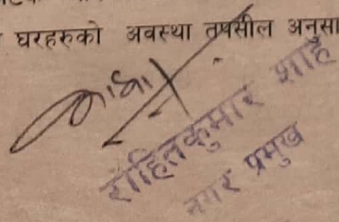 घरहरुको अवस्था तपसील अनुसा
रोहितकुमार शाह
नगर प्रमुख